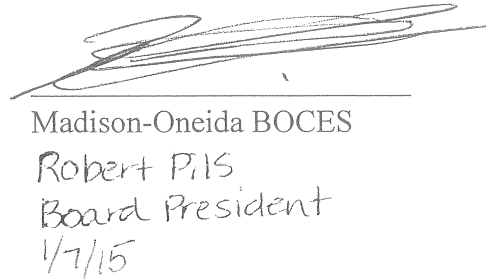 Madison-Oneida BOCES
Robert Pils
Board President
1/7/15